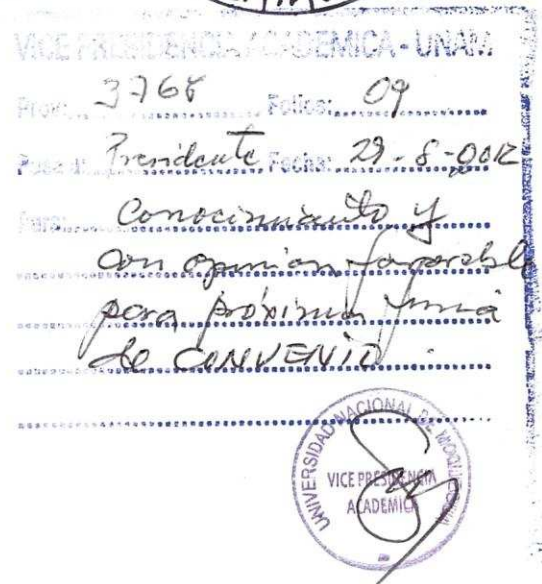 VICE PRESIDENCIA ACADEMICA - UNAM
Prov: 3768 Folios: 09
Pase a: Presidente Fecha: 29-8-2012
Para: Conocimiento y
con opinion favorable
para próxima firma
de CONVENIO.
UNIVERSIDAD NACIONAL DE MOQUEGUA
VICE PRESIDENCIA
ACADEMICA